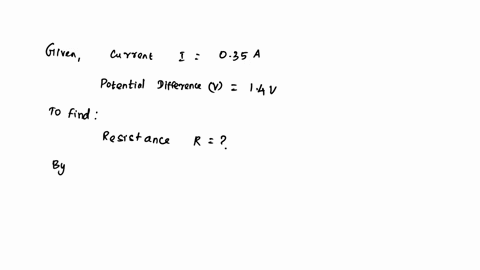 Given, Current I = 0.35 A
Potential Difference (V) = 1.4 V
To find:
Resistance R = ?
By